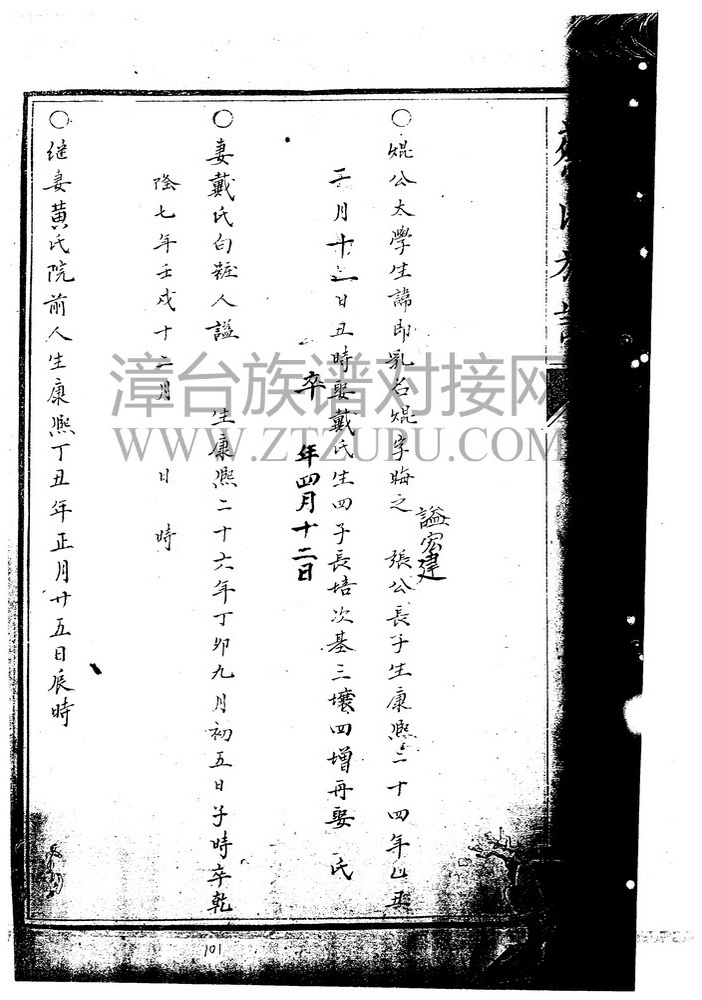 謚宏建
○焜公太學生諱即乳名焜字晦之 張公長子生康熙二十四年
月十 日丑時娶戴氏生四子長培次基三壤四增再娶 氏
卒 年四月十二日
○妻戴氏白粧人謚 生康熙二十六年丁卯九月初五日子時卒乾
隆七年壬戌十二月 日 時
○继妻黄氏院前人生康熙丁丑年正月廿五日辰時
漳台族谱对接网
WWW.ZTZUPU.COM
101